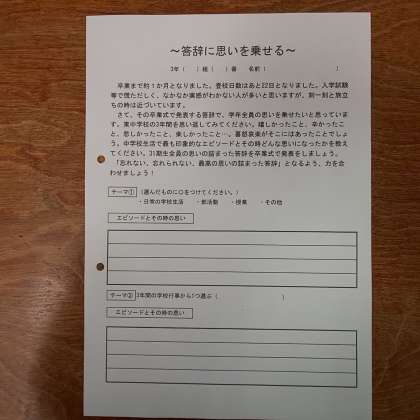 ～答辞に思いを乗せる～
3年（　　）組（　　）番　名前（　　　　　　　　　　）
卒業まで約1か月となりました。登校日数はあと22日となりました。入学試験
等で慌ただしく、なかなか実感がわかない人が多いと思いますが、刻一刻と旅立
ちの時は近づいています。
さて、その卒業式で発表する答辞で、学年全員の思いを乗せたいと思っていま
す。東中学校の3年間を思い返してみてください。嬉しかったこと、辛かったこ
と、悲しかったこと、楽しかったこと…。喜怒哀楽がそこにはあったことでしょ
う。中学校生活で最も印象的なエピソードとその時どんな思いになったかを教え
てください。31期生全員の思いの詰まった答辞を卒業式で発表をしましょう。
「忘れない、忘れられない、最高の思いの詰まった答辞」となるよう、力を合
わせましょう！
テーマ① （選んだものに○をつけてください。）
・日常の学校生活　・部活動　・授業　・その他
エピソードとその時の思い
テーマ② 3年間の学校行事から1つ選ぶ（　　　　　　　　　　）
エピソードとその時の思い